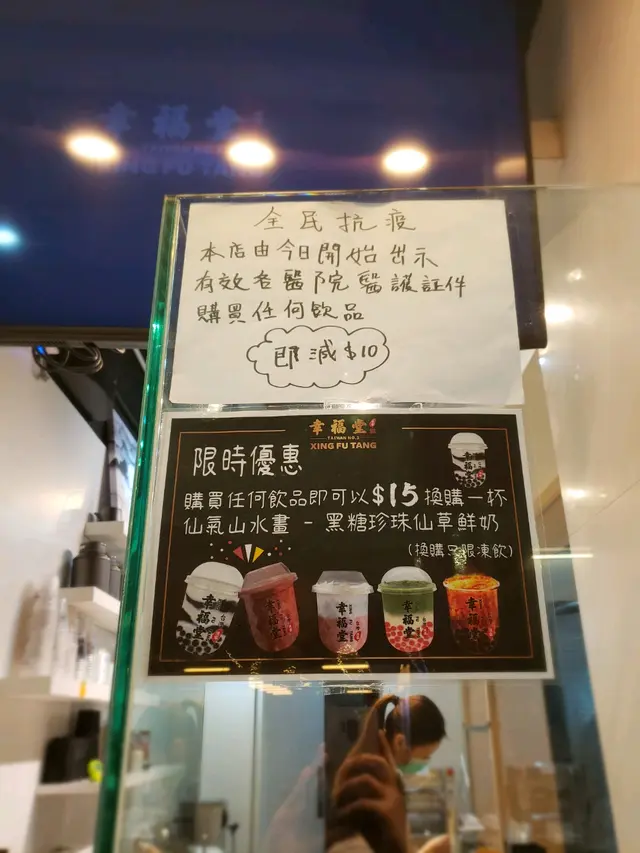 幸福堂
XING FU TANG
全民抗疫
本店由今日開始出示
有效各醫院醫護証件
購買任何飲品
即減$10
幸福堂
TAIWAN NO.1
XING FU TANG
限時優惠
購買任何飲品即可以$15換購一杯
仙氣山水畫 - 黑糖珍珠仙草鮮奶
(換購只限凍飲)
幸福堂
幸福堂
幸福堂
幸福堂
幸福堂